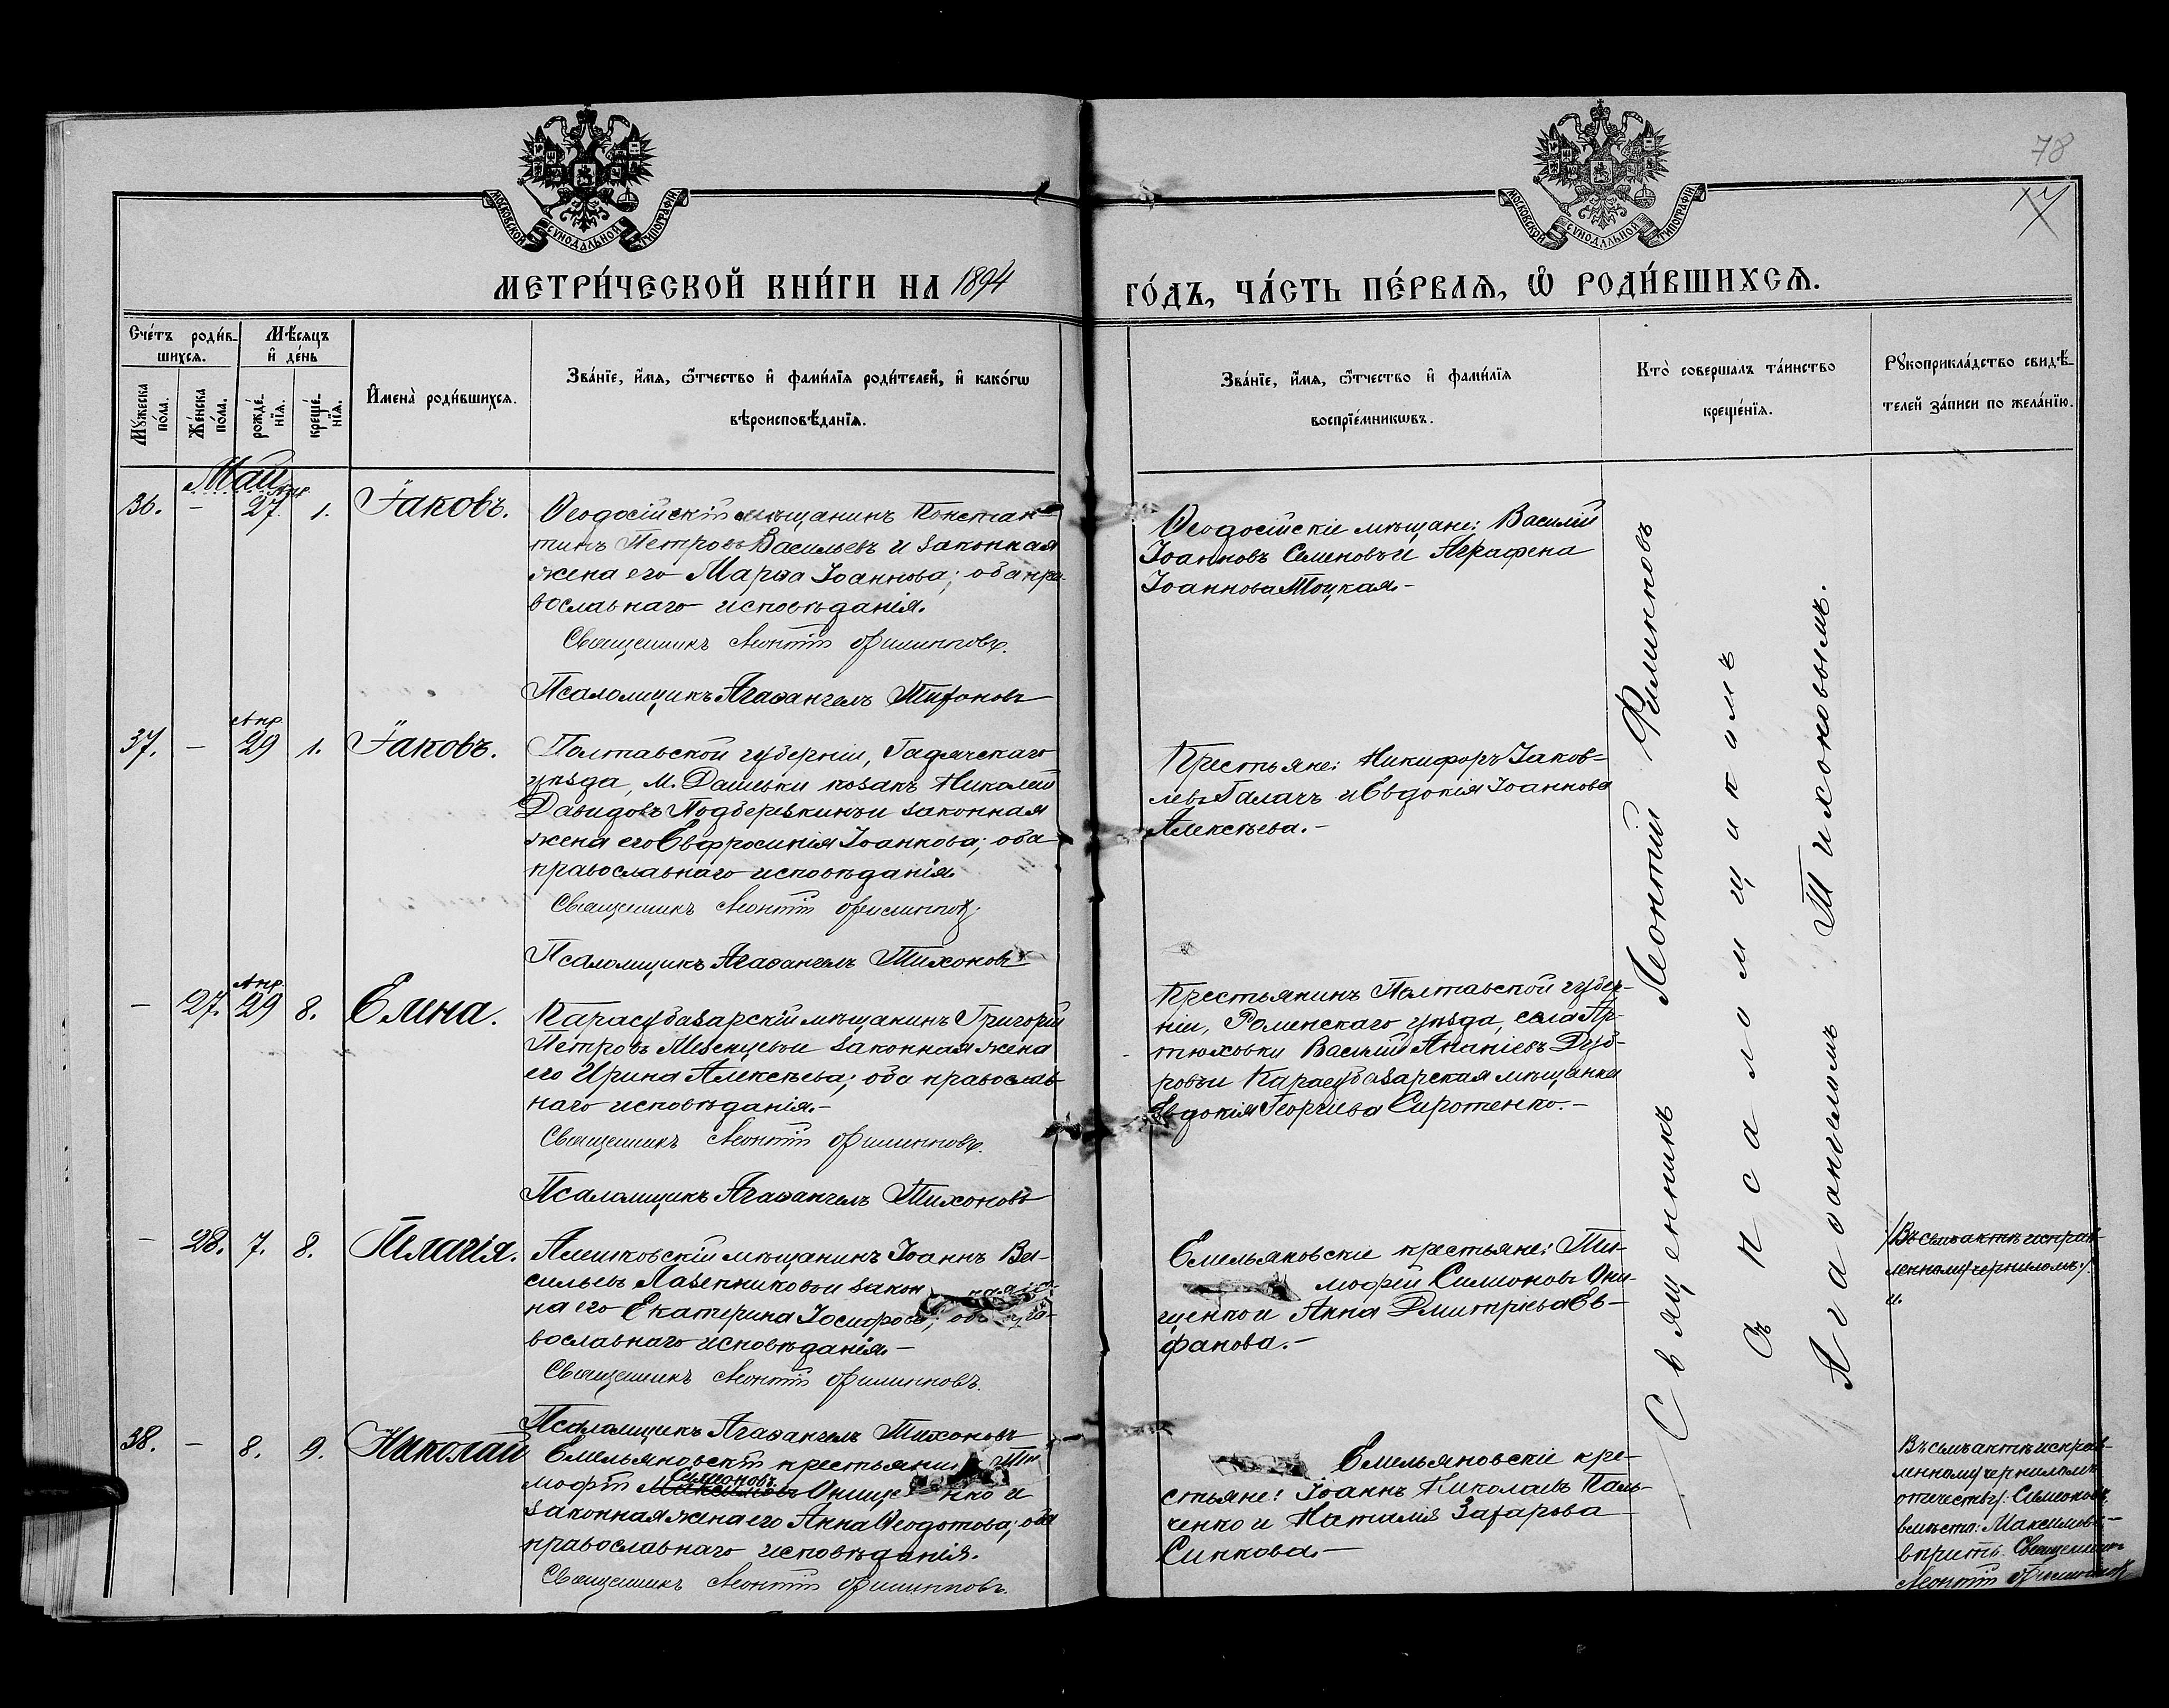 78
17
МОСКОВСКОЙ СѴНОДАЛЬНОЙ ТИПОГРАФІИ
МОСКОВСКОЙ СѴНОДАЛЬНОЙ ТИПОГРАФІИ
МЕТРИ́ЧЕСКОЙ КНИ́ГИ НА 1894
ГО́ДЪ, ЧА́СТЬ ПЕ́РВАѦ, Ѡ҆ РОДИ́ВШИХСѦ.
Сче́тъ роди́в-
шихсѧ.
Мѣ́сѧцъ
и҆ де́нь
Мꙋ́жеска
по́ла.
Же́нска
по́ла.
рожде́-
нїѧ.
креще́-
нїѧ.
И҆мена̀ роди́вшихсѧ.
Зва́нїе, и҆́мѧ, ѻ҆́тчество и҆ фами́лїѧ роди́телей, и҆ како́гѡ
вѣроисповѣ́данїѧ.
Зва́нїе, и҆́мѧ, ѻ҆́тчество и҆ фами́лїѧ
воспрїе́мникѡвъ.
Кто̀ соверша́лъ та́инство
креще́нїѧ.
Рꙋкоприкла́дство свидѣ́-
телей за́писи по жела́нїю.
Май
Апр.
36. – 27. 1. Іаковъ.
Ѳеодосійскій мѣщанинъ Констан-
тинъ Петровъ Васильевъ и законная
жена его Марѳа Іоаннова; оба пра-
вославнаго исповѣданія.
Священникъ Леонтій Филипповъ.
Псаломщикъ Агаѳангелъ Тихоновъ
Ѳеодосійскіе мѣщане: Василій
Іоанновъ Семеновъ и Аграфена
Іоаннова Тоцкая.–
Апр.
37. – 29 1. Іаковъ.
Полтавской губерніи, Гадячскаго
уѣзда, м. Дашевки козакъ Николай
Давидовъ Подберезкинъ и законная
жена его Евфросинія Іоаннова; оба
православнаго исповѣданія.
Священникъ Леонтій Филипповъ.
Псаломщикъ Агаѳангелъ Тихоновъ
Крестьяне: Никифоръ Іаков-
левъ Галачъ и Евдокія Іоаннова
Алексѣева.–
Апр.
– 27. 29 8. Елена.
Карасубазарскій мѣщанинъ Григорій
Петровъ Мезенцевъ и законная жена
его Ирина Алексѣева; оба православ-
наго исповѣданія.–
Священникъ Леонтій Филипповъ.
Псаломщикъ Агаѳангелъ Тихоновъ
Крестьянинъ Полтавской губер-
ніи, Роменскаго уѣзда, села Ар-
тюховки Василій Ананіевъ Дуб-
ровъ и Карасубазарская мѣщанка
Евдокія Георгіева Сиротенко.–
– 28. 7. 8. Пелагія.
Алешковскій мѣщанинъ Іоаннъ Ва-
сильевъ Лазенниковъ и закон ная же-
на его Екатерина Іосифова; оба пра-
вославнаго исповѣданія.–
Священникъ Леонтій Филипповъ.
Псаломщикъ Агаѳангелъ Тихоновъ
Емельяновскіе крестьяне: Ти-
мофей Симеоновъ Они-
щенко и Анна Дмитріева Ев-
фанова.–
Въ семъ актѣ исправ-
ленному чернилами
38. – 8. 9. Николай
Емельяновскій крестьянинъ Ти-
Симеоновъ
мофей Максимовъ Онище нко и
законная жена его Анна Ѳеодотова; оба
православнаго исповѣданія.
Священникъ Леонтій Филипповъ.
Емельяновскіе кре-
стьяне: Іоаннъ Николаевъ Паль-
ченко и Наталія Захарова
Синкова.–
Въ семъ актѣ исправ-
ленному чернилами
отчеству: Симеоновъ
вмѣсто: Максимовъ–
вѣрить. Священникъ
Леонтій Филипповъ
Священникъ Леонтій Филипповъ
съ псаломщикомъ
Агаѳангеломъ Тихоновымъ.